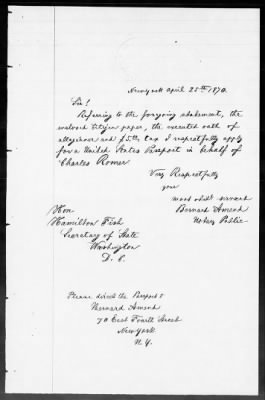 New york April 25th 1870.
Sir!
Referring to the forgoing statement, the
enclosed Citizen paper, the executed oath of
allegiance and $5.00 tax I respectfully apply
for a United States Passport in behalf of
Charles Romer
Very Respectfully
your
most obdt. servant
Bernard Amend
Notary Public
Hon
Hamilton Fish
Secretary of State
Washington
D. C.
Please direct the Passport to
Bernard Amend
70 East Fourth Street
New York
N. Y.